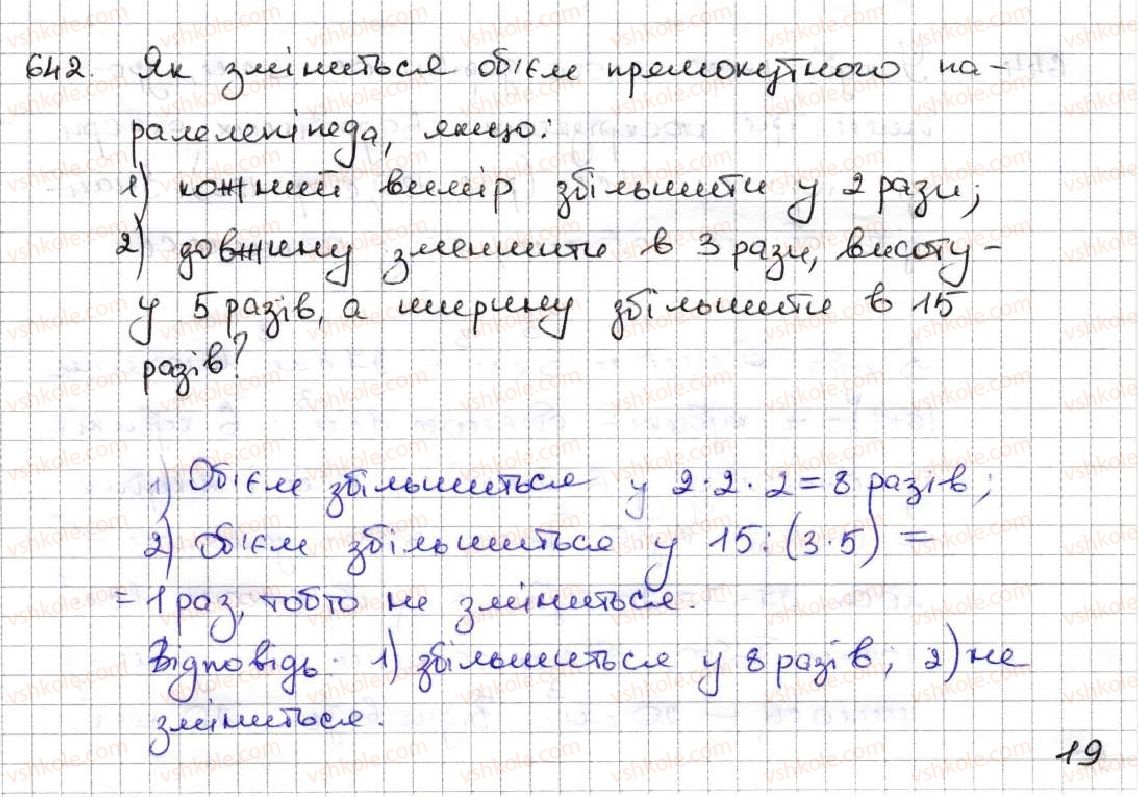 642. Як зміниться об'єм прямокутного па-
ралелепіпеда, якщо:
1) кожний вимір збільшити у 2 рази;
2) довжину зменшити в 3 рази, висоту -
у 5 разів, а ширину збільшити в 15
разів?
1) Об'єм збільшиться у 2·2·2=8 разів;
2) Об'єм збільшиться у 15:(3·5)=
=1 раз, тобто не зміниться.
Відповідь: 1) збільшиться у 8 разів; 2) не
зміниться.
19